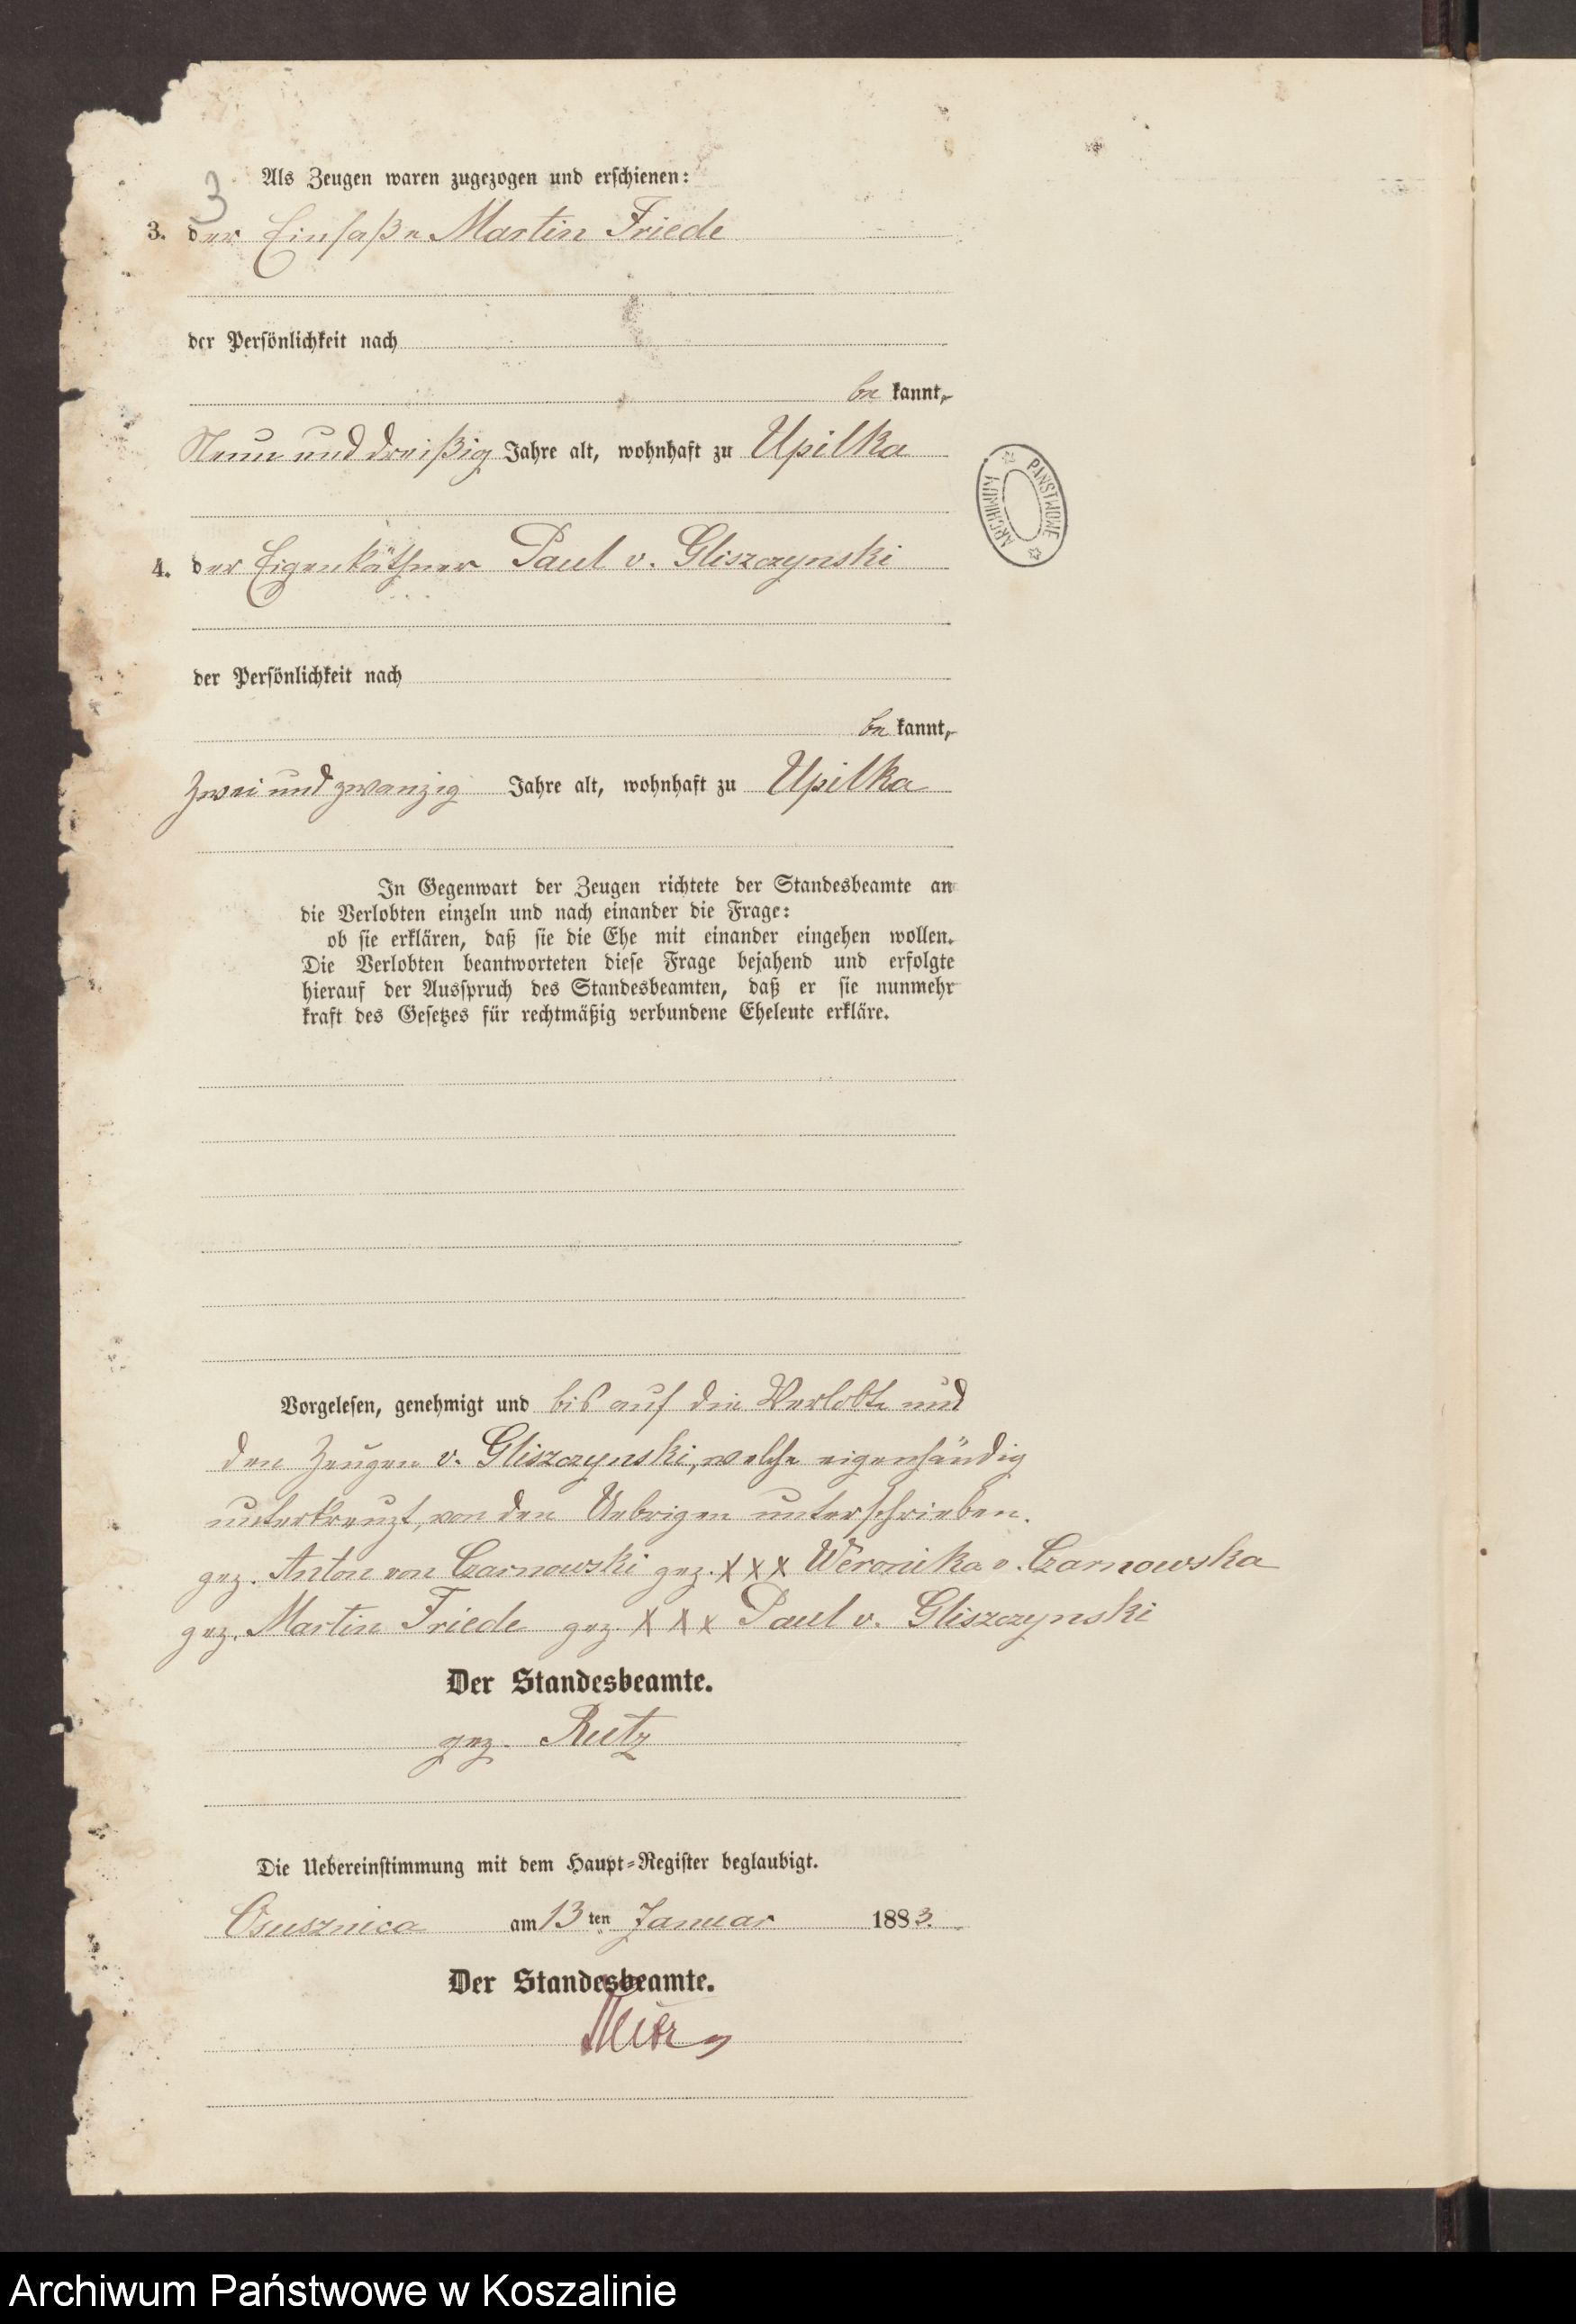 3
Als Zeugen waren zugezogen und erschienen:
3. der Einsaße Martin Friede
der Persönlichkeit nach
be kannt,
Neun und dreißig Jahre alt, wohnhaft zu Upilka
4. der Eigenkäthner Paul v. Gliszczynski
der Persönlichkeit nach
be kannt,
zwei und zwanzig Jahre alt, wohnhaft zu Upilka
ARCHIWUM PAŃSTWOWE
In Gegenwart der Zeugen richtete der Standesbeamte an
die Verlobten einzeln und nach einander die Frage:
ob sie erklären, daß sie die Ehe mit einander eingehen wollen.
Die Verlobten beantworteten diese Frage bejahend und erfolgte
hierauf der Ausspruch des Standesbeamten, daß er sie nunmehr
kraft des Gesetzes für rechtmäßig verbundene Eheleute erkläre.
Vorgelesen, genehmigt und bis auf die Verlobte und
den Zeugen v. Gliszczynski, welche eigenhändig
unterkreuzt, von den Uebrigen unterschrieben.
gez. Anton von Czarnowski gez. XXX Weronika v. Czarnowska
gez. Martin Friede gez. XXX Paul v. Gliszczynski
Der Standesbeamte.
gez. Rutz
Die Uebereinstimmung mit dem Haupt-Register beglaubigt.
Osusznica am 13 ten Januar 1883.
Der Standesbeamte.
Rutz
Archiwum Państwowe w Koszalinie